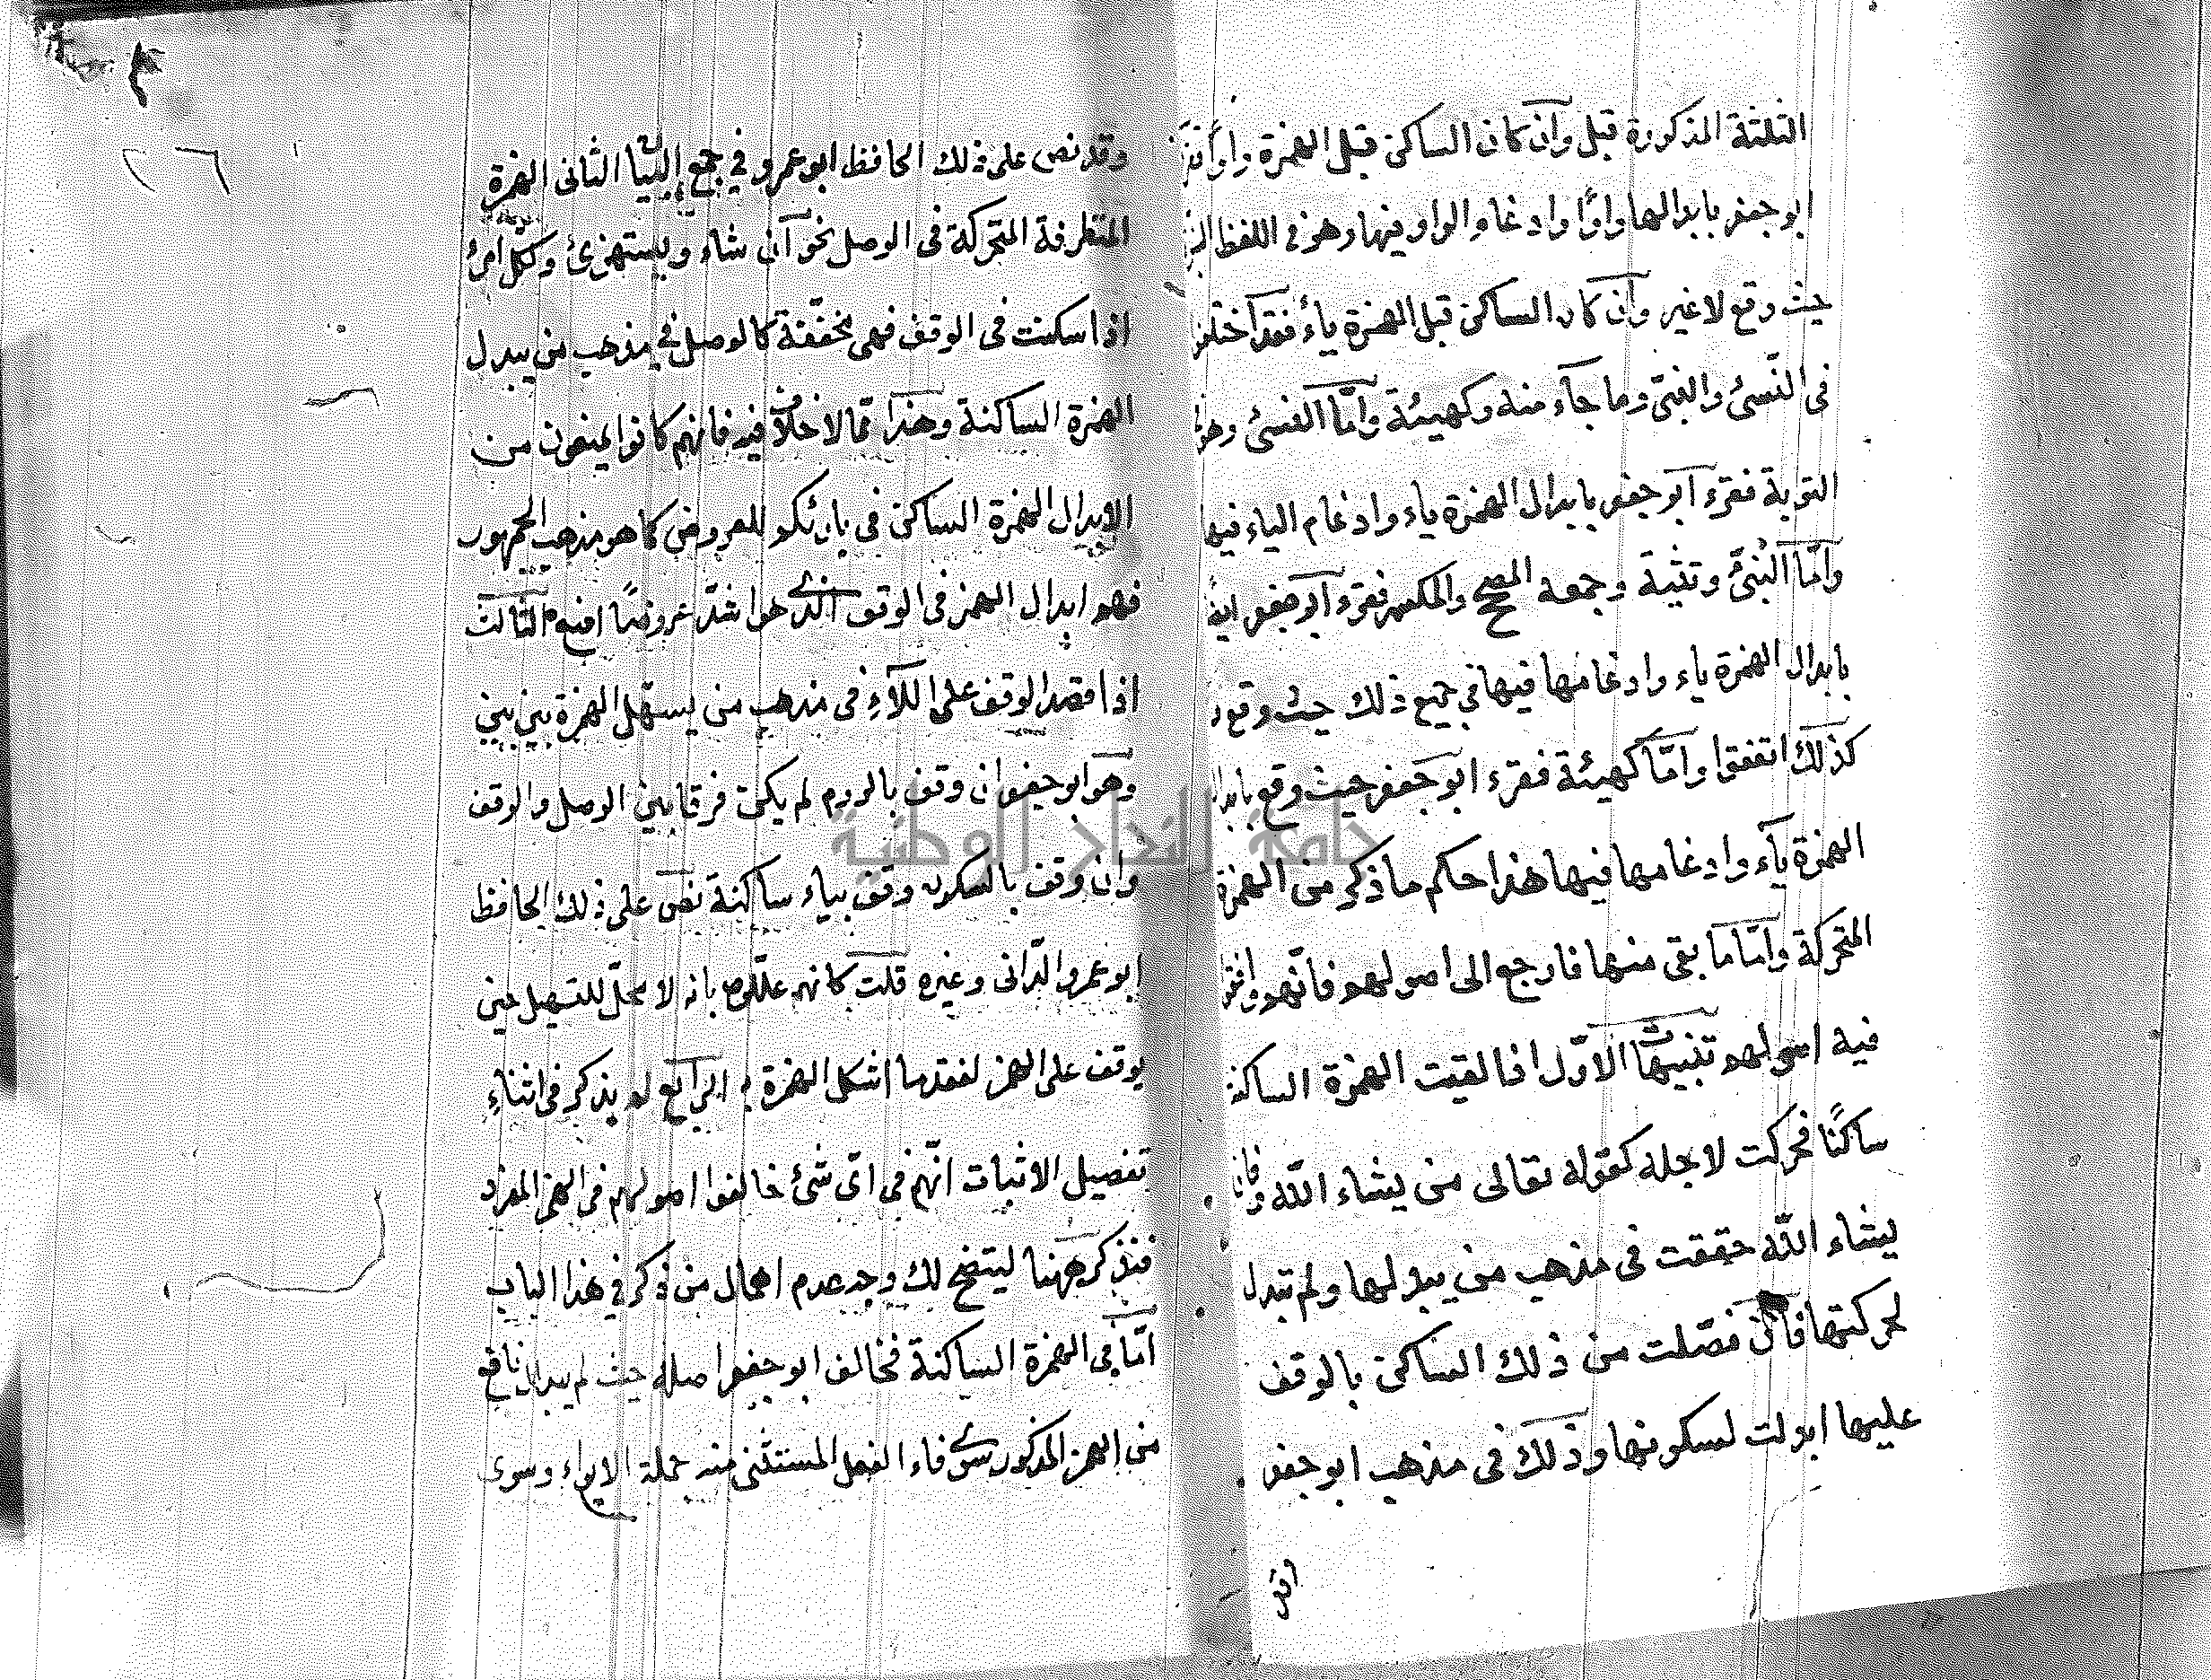 الثلثة المذكورة قبل وان كان الساكن قبل الهمزة واوا
ابو جعفر بابدالها واوًا وادغام الواو فيها وهو في اللفظ
حيث وقع لا غير وان كان الساكن قبل الهمزة ياءً فقد اختلف
في النّسئ والنبئ وما جآء منه وكهيئة وامّا النسئ وهو
التوبة فقرء ابو جعفر بابدال الهمزة ياء وادغام الياء فيها
وامّا النبئ وتثنية وجمعه المصحح والمكسر فقرء ابو جعفر ايضًا
بابدال الهمزة ياء وادغامها فيها في جميع ذلك حيث وقع
كذلك اتفقوا وامّا كهيئة فقرء ابو جعفر حيث وقع بابدال
الهمزة يآء وادغامها فيها هذا حكم ما ذكر من الهمزة
المتحركة وامّا ما بقى منها فارجع الى اصولهم فانّهم وافقوا
فيه اصولهم تنبيهات الاوّل اذا لقيت الهمزة الساكنة
ساكنًا فحركت لاجله كقوله تعالى من يشاء الله
يشاء الله حققت في مذهب من يبدلها ولم تبدل
لحركتها فان فصّلت من ذلك الساكن بالوقف
عليها ابدلت لسكونها وذلك في مذهب ابو جعفر
وقد نص على ذلك الحافظ ابو عمرو في جمع البيان الثانى الهمزة
المتطرفة المتحركة في الوصل نحو ان شاء ويستهزئ ولكل امرئ
اذا سكنت في الوقف فهى مخفّفة كالوصل في مذهب من يبدل
الهمزة الساكنة وهذا ممّا لا خلاف فيه فانهم كانوا يمنعون من
الابدال الهمزة الساكن في للعروض كما هو مذهب الجمهور
فهو ابدال الهمز في الوقف الذى هو اشدّ عروضًا الثالث
اذا قصد الوقف على اللآءِ في مذهب من يسهّل الهمزة بين بين
وهو ابو جعفر ان وقف بالروم لم يكن فرقا بين الوصل والوقف
وان وقف بالسكون وقف بياء ساكنة نص على ذلك الحافظ
ابو عمرو الدّانى وغيره قلت كانهم علّلوه بانه لا محلّ للتسهيل حين
يوقف على الهمز لفقدها شكل الهمزة الرابع لم يذكر في اثناءِ
تفصيل الاثبات انّهم في اىّ شئ خالفوا اصولهم في الهمز المفرد
فنذكر ههنا ليتضح لك وجه عدم اهمال من ذكر في هذا الباب
امّا في الهمزة الساكنة فخالف ابو جعفر اصله حيث لم يبدل نافع
من الهمز المذكور سوى فاء الفعل المستثنى منه جملة الايواء وسوى
جامعة النجاح الوطنية
٢٦